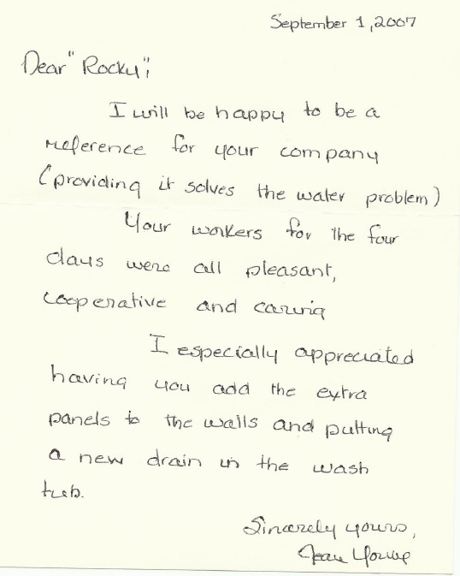 September 1, 2007
Dear "Rocky";
I will be happy to be a
reference for your company
(providing it solves the water problem)
Your workers for the four
days were all pleasant,
cooperative and caring
I especially appreciated
having you add the extra
panels to the walls and putting
a new drain in the wash
tub.
Sincerely yours,
Jean